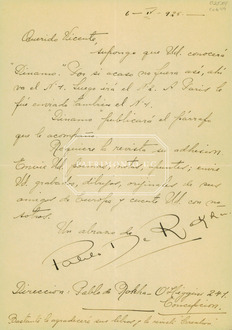 6 - IV - 925.-
Querido Vicente,
supongo que Ud. conocerá
"Dínamo". Por si acaso no fuera así, ahi
va el Nº 1. Luego irá el Nº 2. A París le
fué enviado también el Nº 1.
Dínamo publicará el párrafo
que le acompaño.
Requiere la revista su adhesión.
Envíe Ud. poemas, notas, apuntes; envíe
Ud. grabados, dibujos, originales de sus
amigos de Europa y cuente Ud. con no-
sotros.
Un abrazo de
Pablo De Rokha
Direccion: Pablo de Rokha O'Higgins 241
Concepcion.